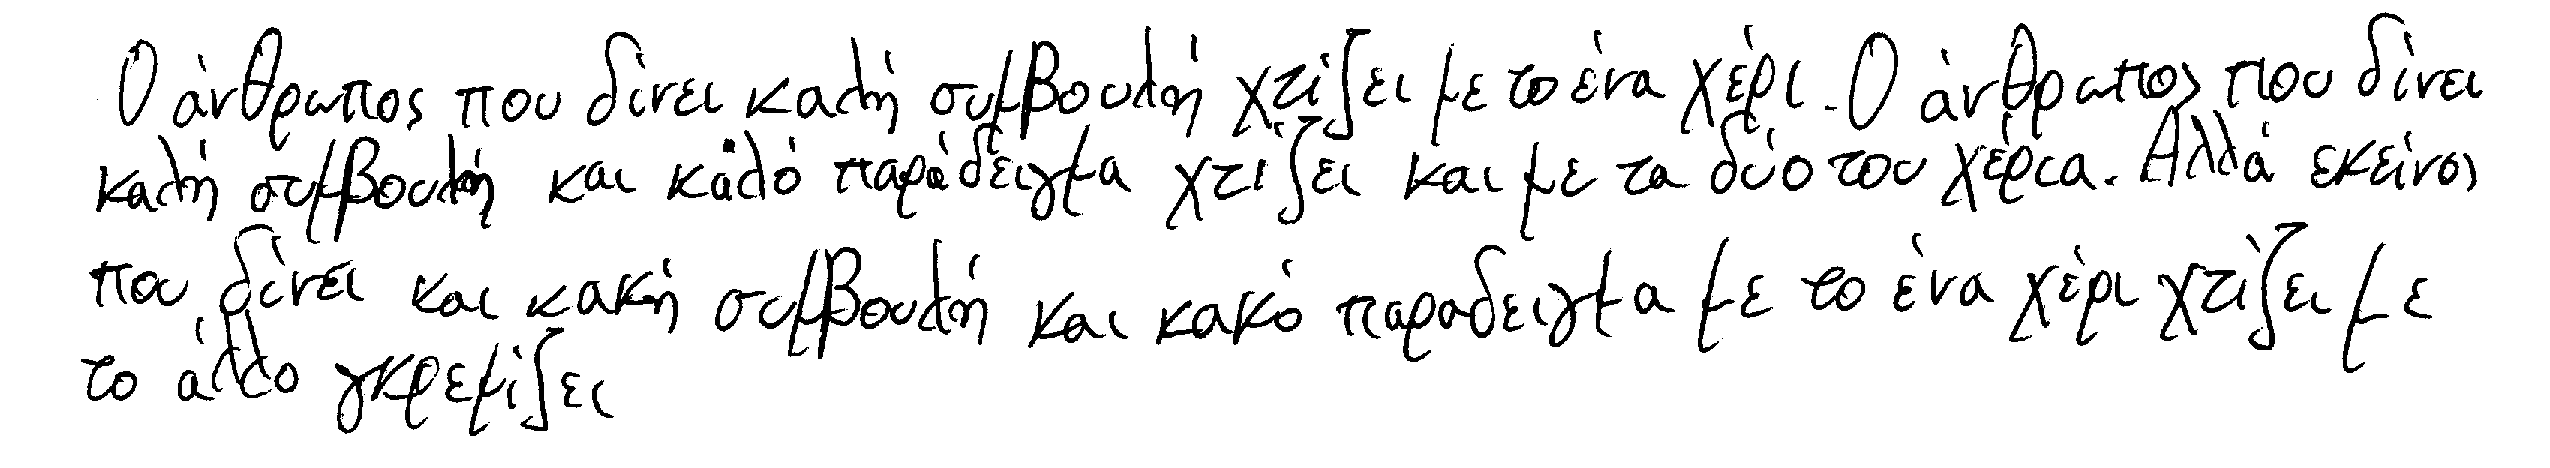 Ο άνθρωπος που δίνει καλή συμβουλή χτίζει με το ένα χέρι. Ο άνθρωπος που δίνει
καλή συμβουλή και καλό παράδειγμα χτίζει και με τα δύο του χέρια. Αλλά εκείνος
που δίνει και κακή συμβουλή και κακό παραδειγμα με το ένα χέρι χτίζει με
το άλλο γκρεμίζει